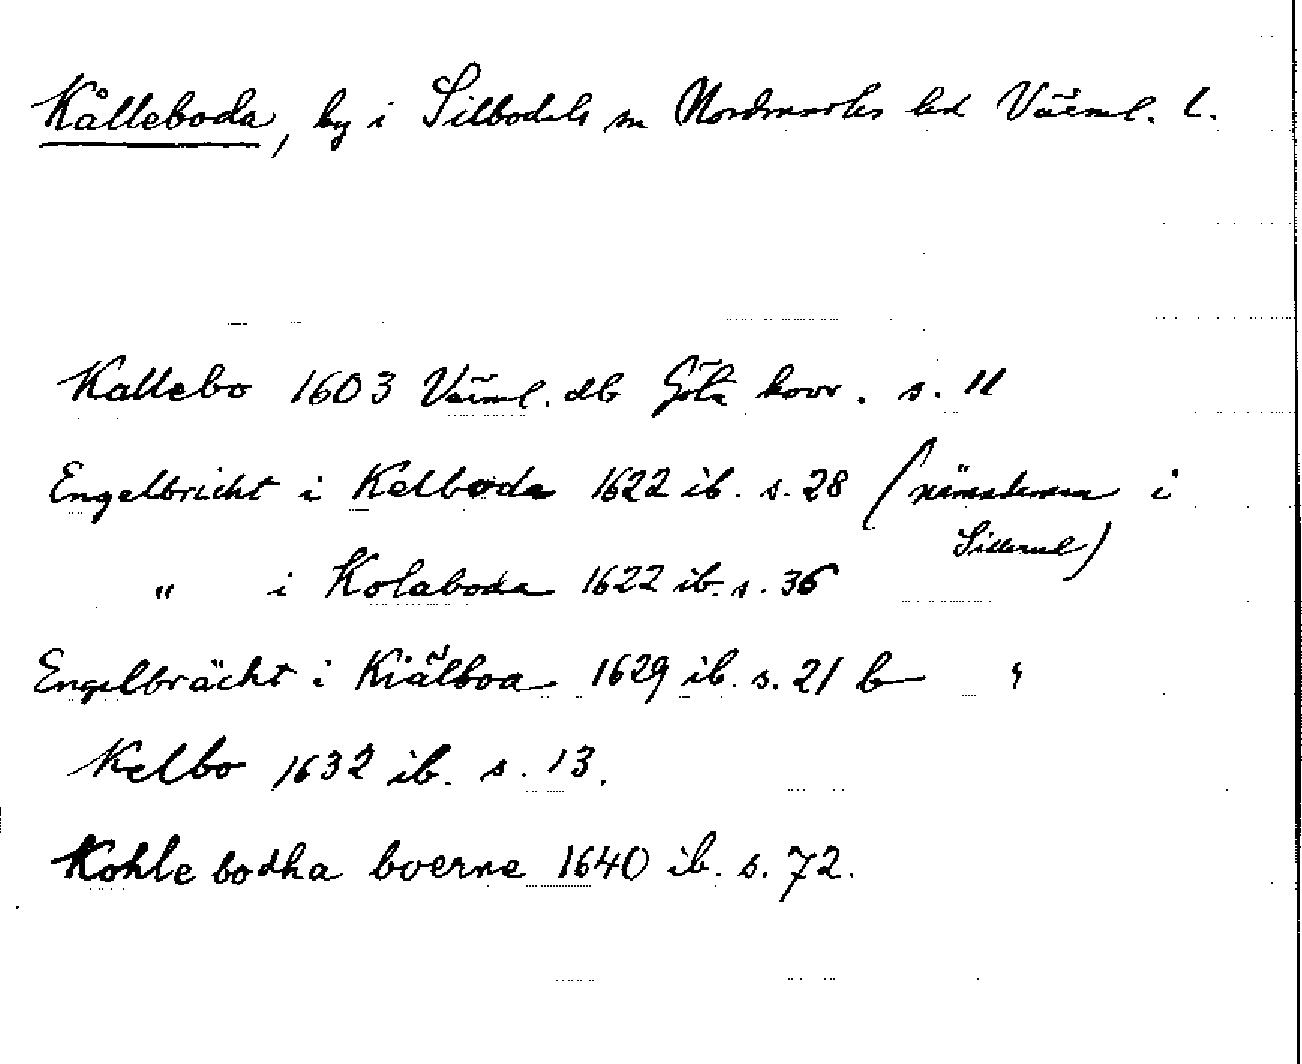 Kålleboda, by i Silbodals sn Nordmarks hd Värml. l.
Kallebo 1603 Värml. db Göta hovr. s. 11
Engelbricht i Kelboda 1622 ib. s. 28 (nämndeman i
Sillerud)
" i Kolaboda 1622 ib. s. 36
Engelbrächt i Kiälboa 1629 ib. s. 21 b "
Kelbo 1632 ib. s. 13.
Kohle bodha boerne 1640 ib. s. 72.